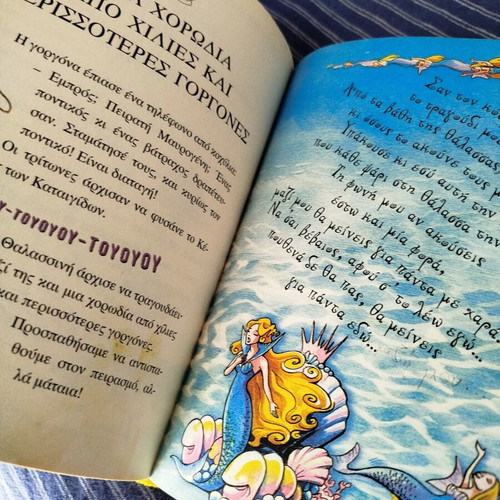 ΧΟΡΩΔΙΑ
ΑΠΟ ΧΙΛΙΕΣ ΚΑΙ
ΠΕΡΙΣΣΟΤΕΡΕΣ ΓΟΡΓΟΝΕΣ
Η γοργόνα έπιασε ένα τηλέφωνο από κοχύλια:
– Εμπρός; Πειρατή Μαυρογένη; Ένας
ποντικός κι ένας βάτραχος δραπέτευ-
σαν. Σταμάτησέ τους, και κυρίως τον
ποντικό! Είναι διαταγή!
Οι τρίτωνες άρχισαν να φυσάνε το Κέ-
των Καταιγίδων.
-ΤΟΥΟΥΟΥ-ΤΟΥΟΥΟΥ
Θαλασσινή άρχισε να τραγουδάει
ζί της και μια χορωδία από χίλιες
και περισσότερες γοργόνες.
Προσπαθήσαμε να αντιστα-
θούμε στον πειρασμό, αλ-
λά μάταια!
Σαν τον
το τραγούδι μου
Από τα βάθη της θάλασσας
κι όσους το ακούνε τους
Υπάκουσε κι εσύ αυτή την
που κάθε ψάρι στη θάλασσα
Τη φωνή μου αν ακούσεις
έστω και μία φορά,
μαζί μου θα μείνεις για πάντα με χαρά.
Να 'σαι βέβαιος, αφού σ' το λέω εγώ...
πουθενά δε θα πας, θα μείνεις
για πάντα εδώ...